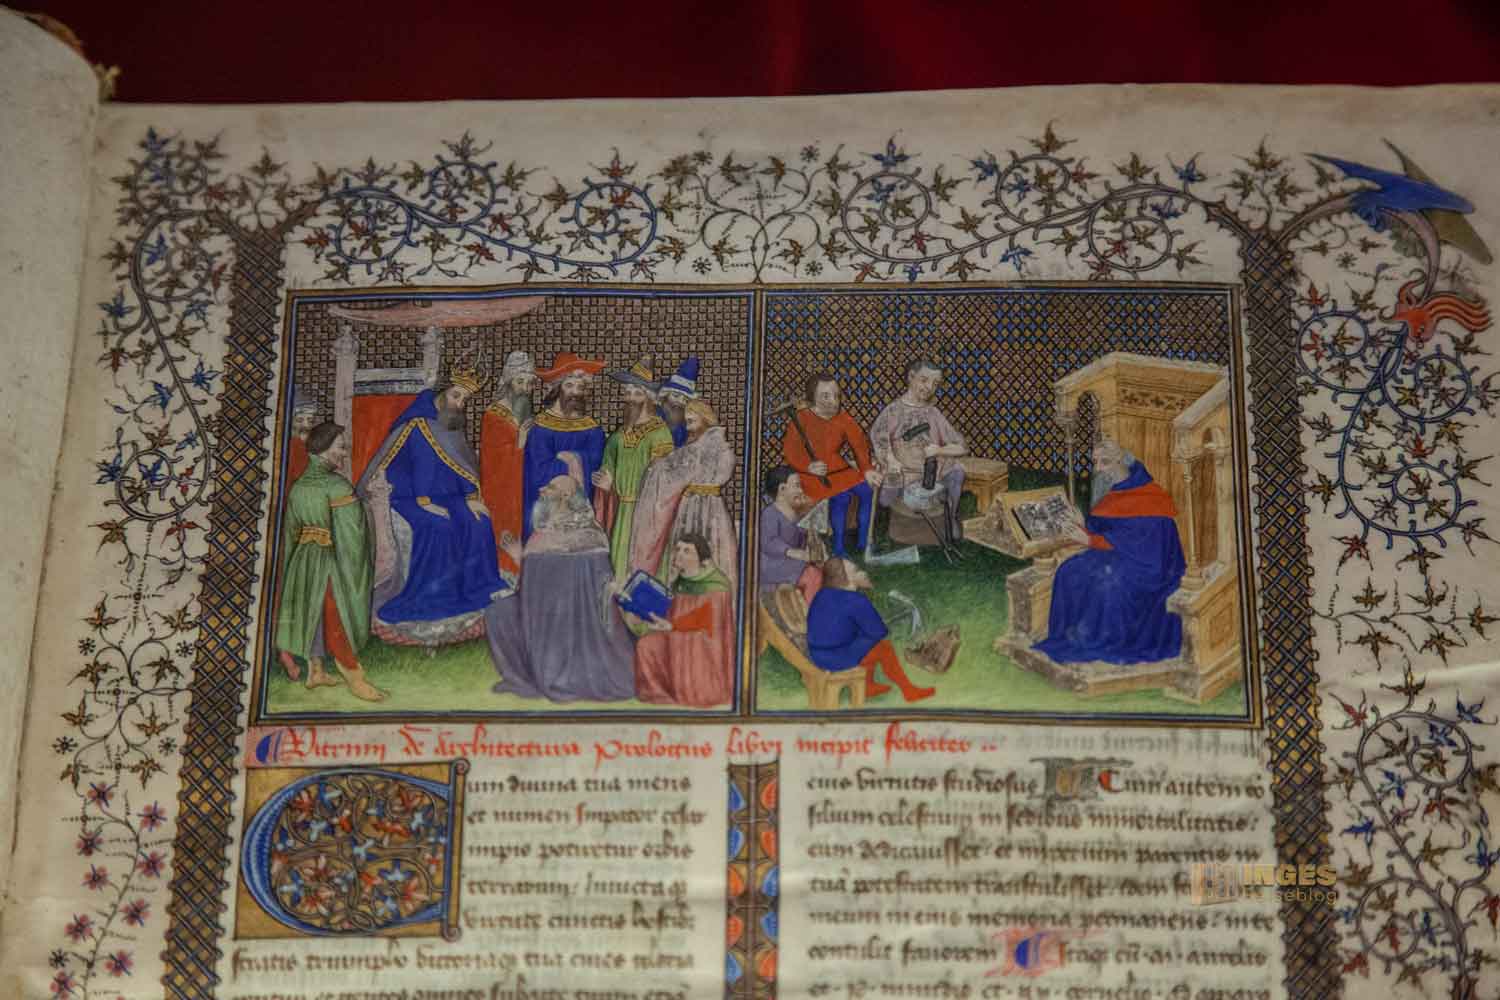 Vitruvii de Architectura Prologus libri incipit feliciter
Cum diuina tua mens
et numen Imperator cesar
imperio potiretur orbis
terrarum / Inuicta qz
virtute cunctis hostibz
stratis triumpho victoriaqz tua ciues gloria
eius virtutis studiosus Cum autem co
silium celestium in sedibus immortalitatis:
eum dedicauisset: et imperium parentis in
tuã potestatem transtulisset. idem
meum in eius memoria permanens: in te
contulit fauorem Itaqz cũ .m. aurelio
et .P. minidio et .gn. cornelio. Ad appara
INGES
reiseblog